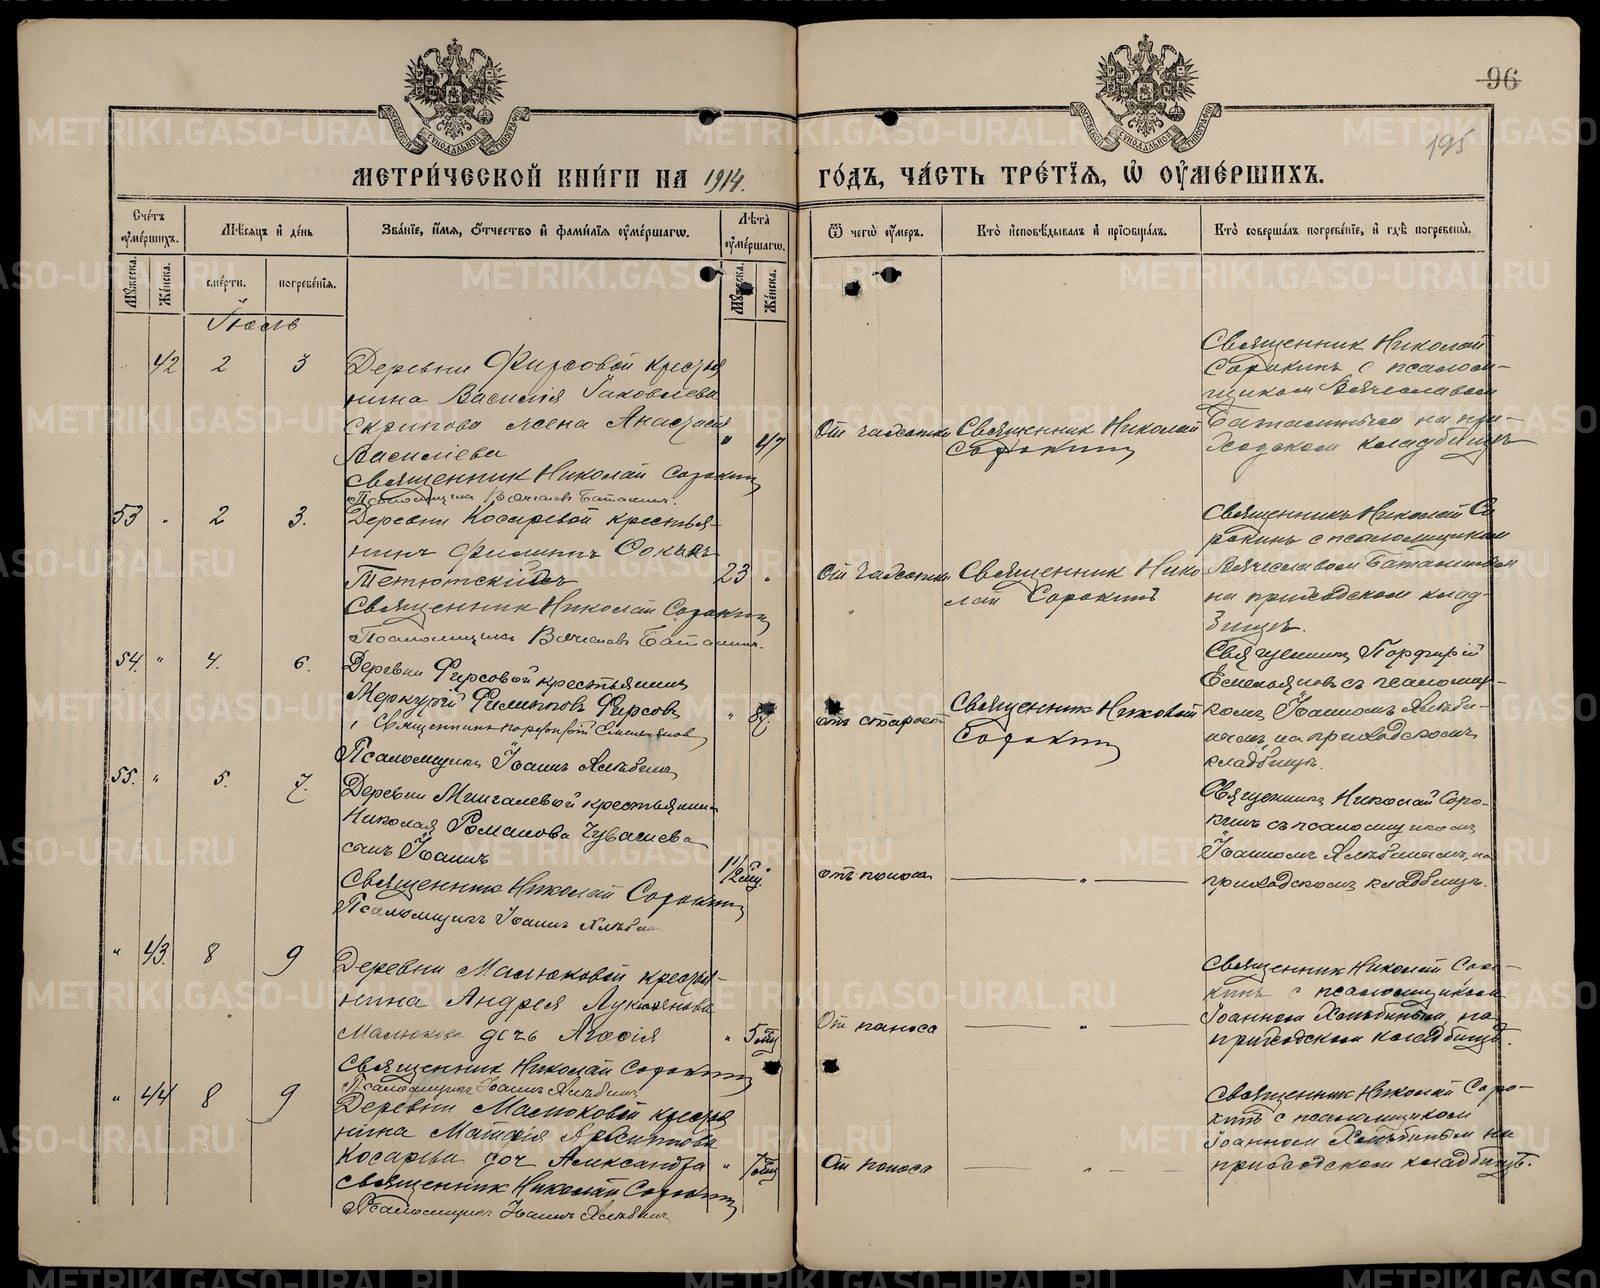 96
195
МЕТРИ́ЧЕСКОЙ КНИ́ГИ НА 1914.
ГО́ДЪ, ЧА́СТЬ ТРЕ́ТЇѦ, Ѡ҆ ОУ҆МЕ́РШИХЪ.
Сче́тъ оу҆ме́ршихъ.
Мѣ́сяцъ и҆ де́нь
Зва́нїе, и҆́мѧ, ѻ҆́тчество и҆ фами́лїѧ оу҆ме́ршагѡ.
Лѣ́та оу҆ме́ршагѡ.
Ѿ чегѡ̀ оу҆́меръ.
Кто̀ и҆сповѣ́дывалъ и҆ прїѡбща́лъ.
Кто̀ соверша́лъ погребе́нїе, и҆ гдѣ̀ погребены̀.
Мꙋ́жеска.
Же́нска.
сме́рти.
погребе́нїѧ.
Мꙋ́жеска.
Же́нска.
Іюль
42 2 3
Деревни Фирсовой крестья
нина Василія Іаковлева
Скрипова жена Анастасія
Василіева
" 47
Священник Николай Сорокин
Псаломщик Вячеслав
От чахотки
Священник Николай
Сорокин
Священник Николай
Сорокинъ с псалом-
щиком Вячеславом
на при-
ходском кладбищѣ
53 " 2 3.
Деревни Косаревой крестья-
нинъ Филиппъ
23 "
Священник Николай Сорокин
Псаломщикъ Вячеслав
От чахотки
Священник Нико
лай Сорокинъ
Священникъ Николай Со
рокинъ с псаломщиком
Вячеславом
на приходском клад-
бищѣ.
54. " 4. 6.
Деревни Фирсовой крестьянин
Меркурій Филиппов Фирсовъ
Священникъ Порфирій Емельянов
Псаломщик Іоаннъ Хлѣбин
от старост
Священник Николай
Сорокин
Священник Порфирій
Емельяновъ съ псаломщ-
комъ Іоанномъ Хлѣби-
нымъ, на приходскомъ
кладбищѣ.
55. " 5. 7.
Деревни Мингалевой крестьянин
Николая Романова Чувашева
сынъ Іоаннъ
Священник Николай Сорокин
Псаломщикъ Іоаннъ Хлѣбин
отъ поноса
"
Священник Николай Соро-
кинъ съ псаломщикомъ
Іоанномъ Хлѣбинымъ, на
приходскомъ кладбищѣ.
" 43. 8 9
Деревни Малюковой крестья-
нина Андрея Лукіянова
Малюкова дочь Агафія
Священник Николай Сорокин
Псаломщикъ Іоаннъ Хлѣбин
От поноса
"
Священник Николай Соро-
кинъ с псаломщиком
Іоанном Хлѣбиным на
приходском кладбищѣ.
" 44 8 9
Деревни Малюковой крестья
нина Архиппова
Косарева доч Александра
Священник Николай Сорокин
Псаломщик Іоаннъ Хлѣбин
От поноса
"
Священник Николай Соро-
кинъ с псаломщиком
Іоанном Хлѣбиным на
приходском кладбищѣ.
METRIKI.GASO-URAL.RU